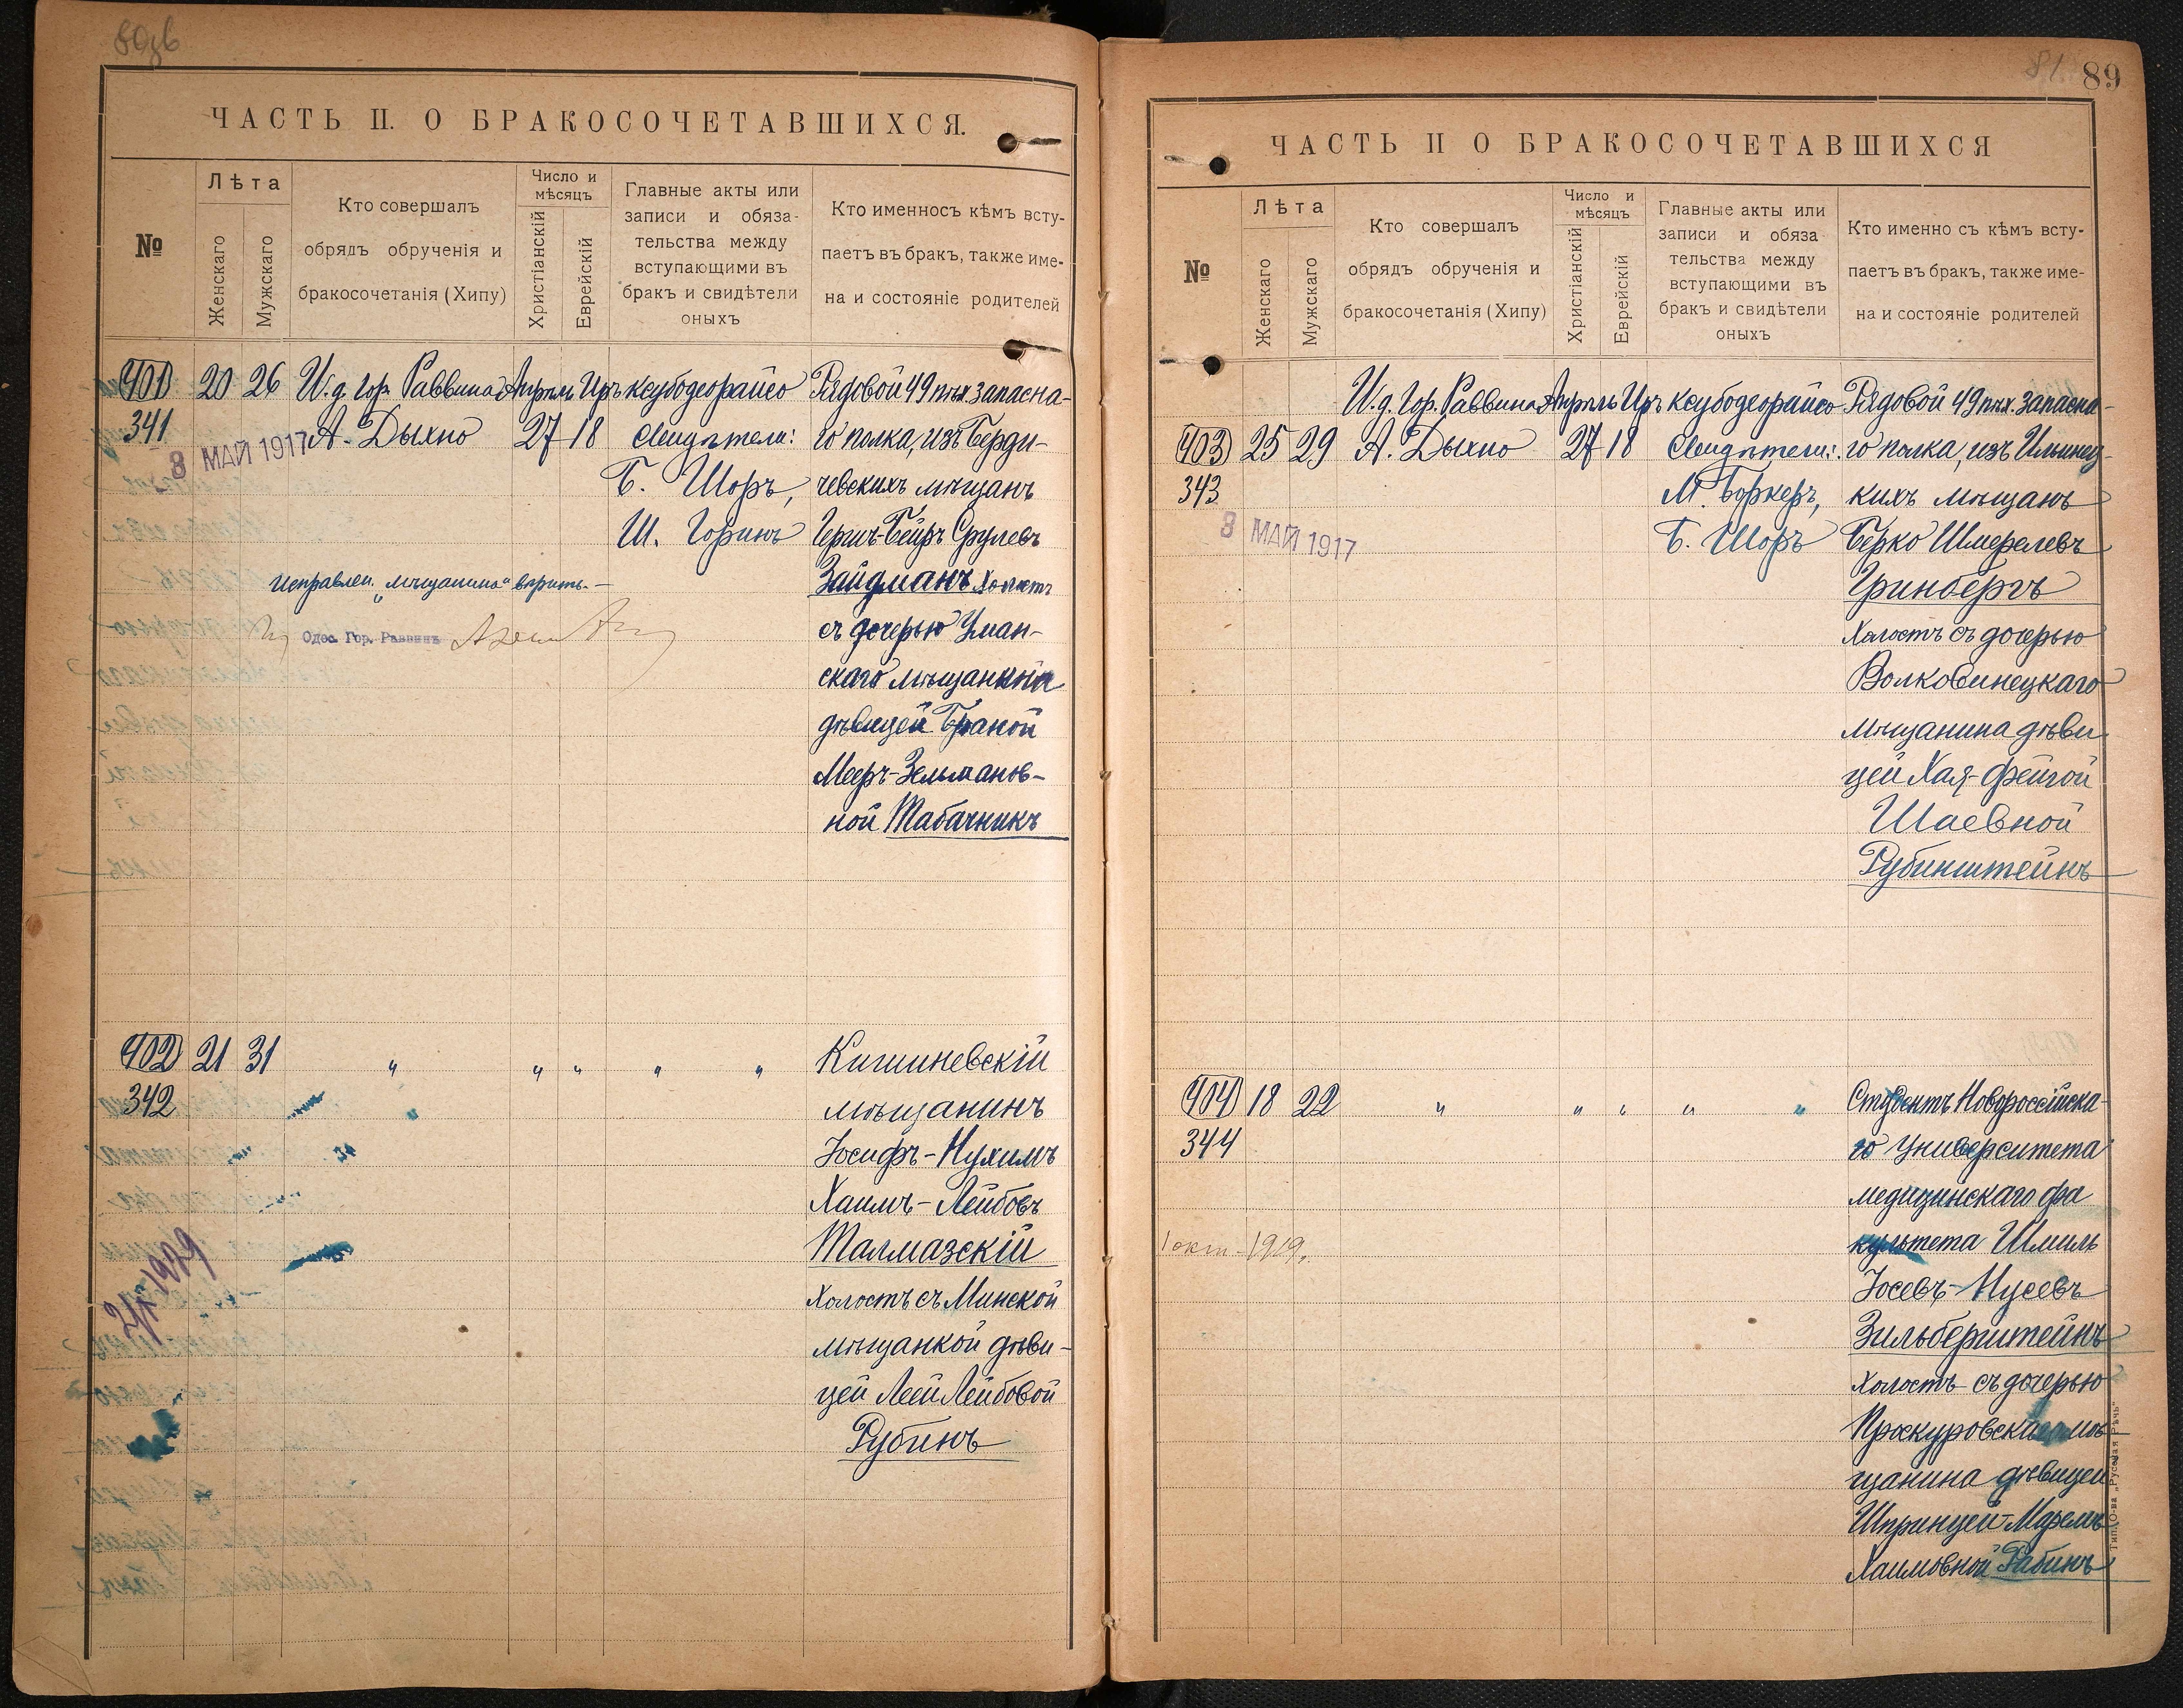 ЧАСТЬ II. О БРАКОСОЧЕТАВШИХСЯ.
№
Лѣта
Женскаго
Мужскаго
Кто совершалъ
обрядъ обрученія и
бракосочетанія (Хипу)
Число и
мѣсяцъ
Христіанскій
Еврейскій
Главные акты или
записи и обяза-
тельства между
вступающими въ
бракъ и свидѣтели
оныхъ
Кто именносъ кѣмъ всту-
паетъ въ бракъ, также име-
на и состояніе родителей
401 20 26 И.д. гор. Раввина Апрѣль Иръ ксубодеорайсо Рядовой 49 пѣх. запасна-
341 А. Дыхно 27 18 Свидѣтели: го полка, изъ Берди-
8 МАЙ 1917
Б. Шоръ, чевскихъ мѣщанъ
Ш. Горинъ Гершъ-Бейръ Срулевъ
Исправлен. „мѣщанина" вѣрить.- Зайдманъ Холостъ
Одес. Гор. Раввинъ съ дочерью Уман-
скаго мѣщанина
дѣвицей Браной
Мееръ-Зельманов-
ной Табачникъ
402 21 31 " " " " " Кишиневскій
342 мѣщанинъ
Іосифъ-Нухимъ
Хаимъ-Лейбовъ
Талмазскій
Холостъ съ Минской
мѣщанкой дѣви-
цей Леей Лейбовой
Рубинъ
81 89
ЧАСТЬ II О БРАКОСОЧЕТАВШИХСЯ
№
Лѣта
Женскаго
Мужскаго
Кто совершалъ
обрядъ обрученія и
бракосочетанія (Хипу)
Число и
мѣсяцъ
Христіанскій
Еврейскій
Главные акты или
записи и обяза
тельства между
вступающими въ
бракъ и свидѣтели
оныхъ
Кто именно съ кѣмъ всту-
паетъ въ бракъ, также име-
на и состояніе родителей
И.д. Гор. Раввина Апрѣль Иръ ксубодеорайсо Рядовой 49 пѣх. запасна-
403 25 29 А. Дыхно 27 18 Свидѣтели: го полка, изъ Ильинец-
343 М. Боркеръ, кихъ мѣщанъ
8 МАЙ 1917
Б. Шоръ Берко Шмерелевъ
Гринбергъ
Холостъ съ дочерью
Волковинецкаго
мѣщанина дѣви
цей Хая-Фейгой
Шаевной
Рубинштейнъ
404 18 22 " " " " " Студентъ Новороссійска-
344 го университета
медицинскаго фа
1 окт. 1919. культета Шмиль
Іосевъ-Нусевъ
Зильберштейнъ
Холостъ съ дочерью
Проскуровскаго мѣ
щанина дѣвицей
Шпринцей-Маремъ
Хаимовной Рабинъ